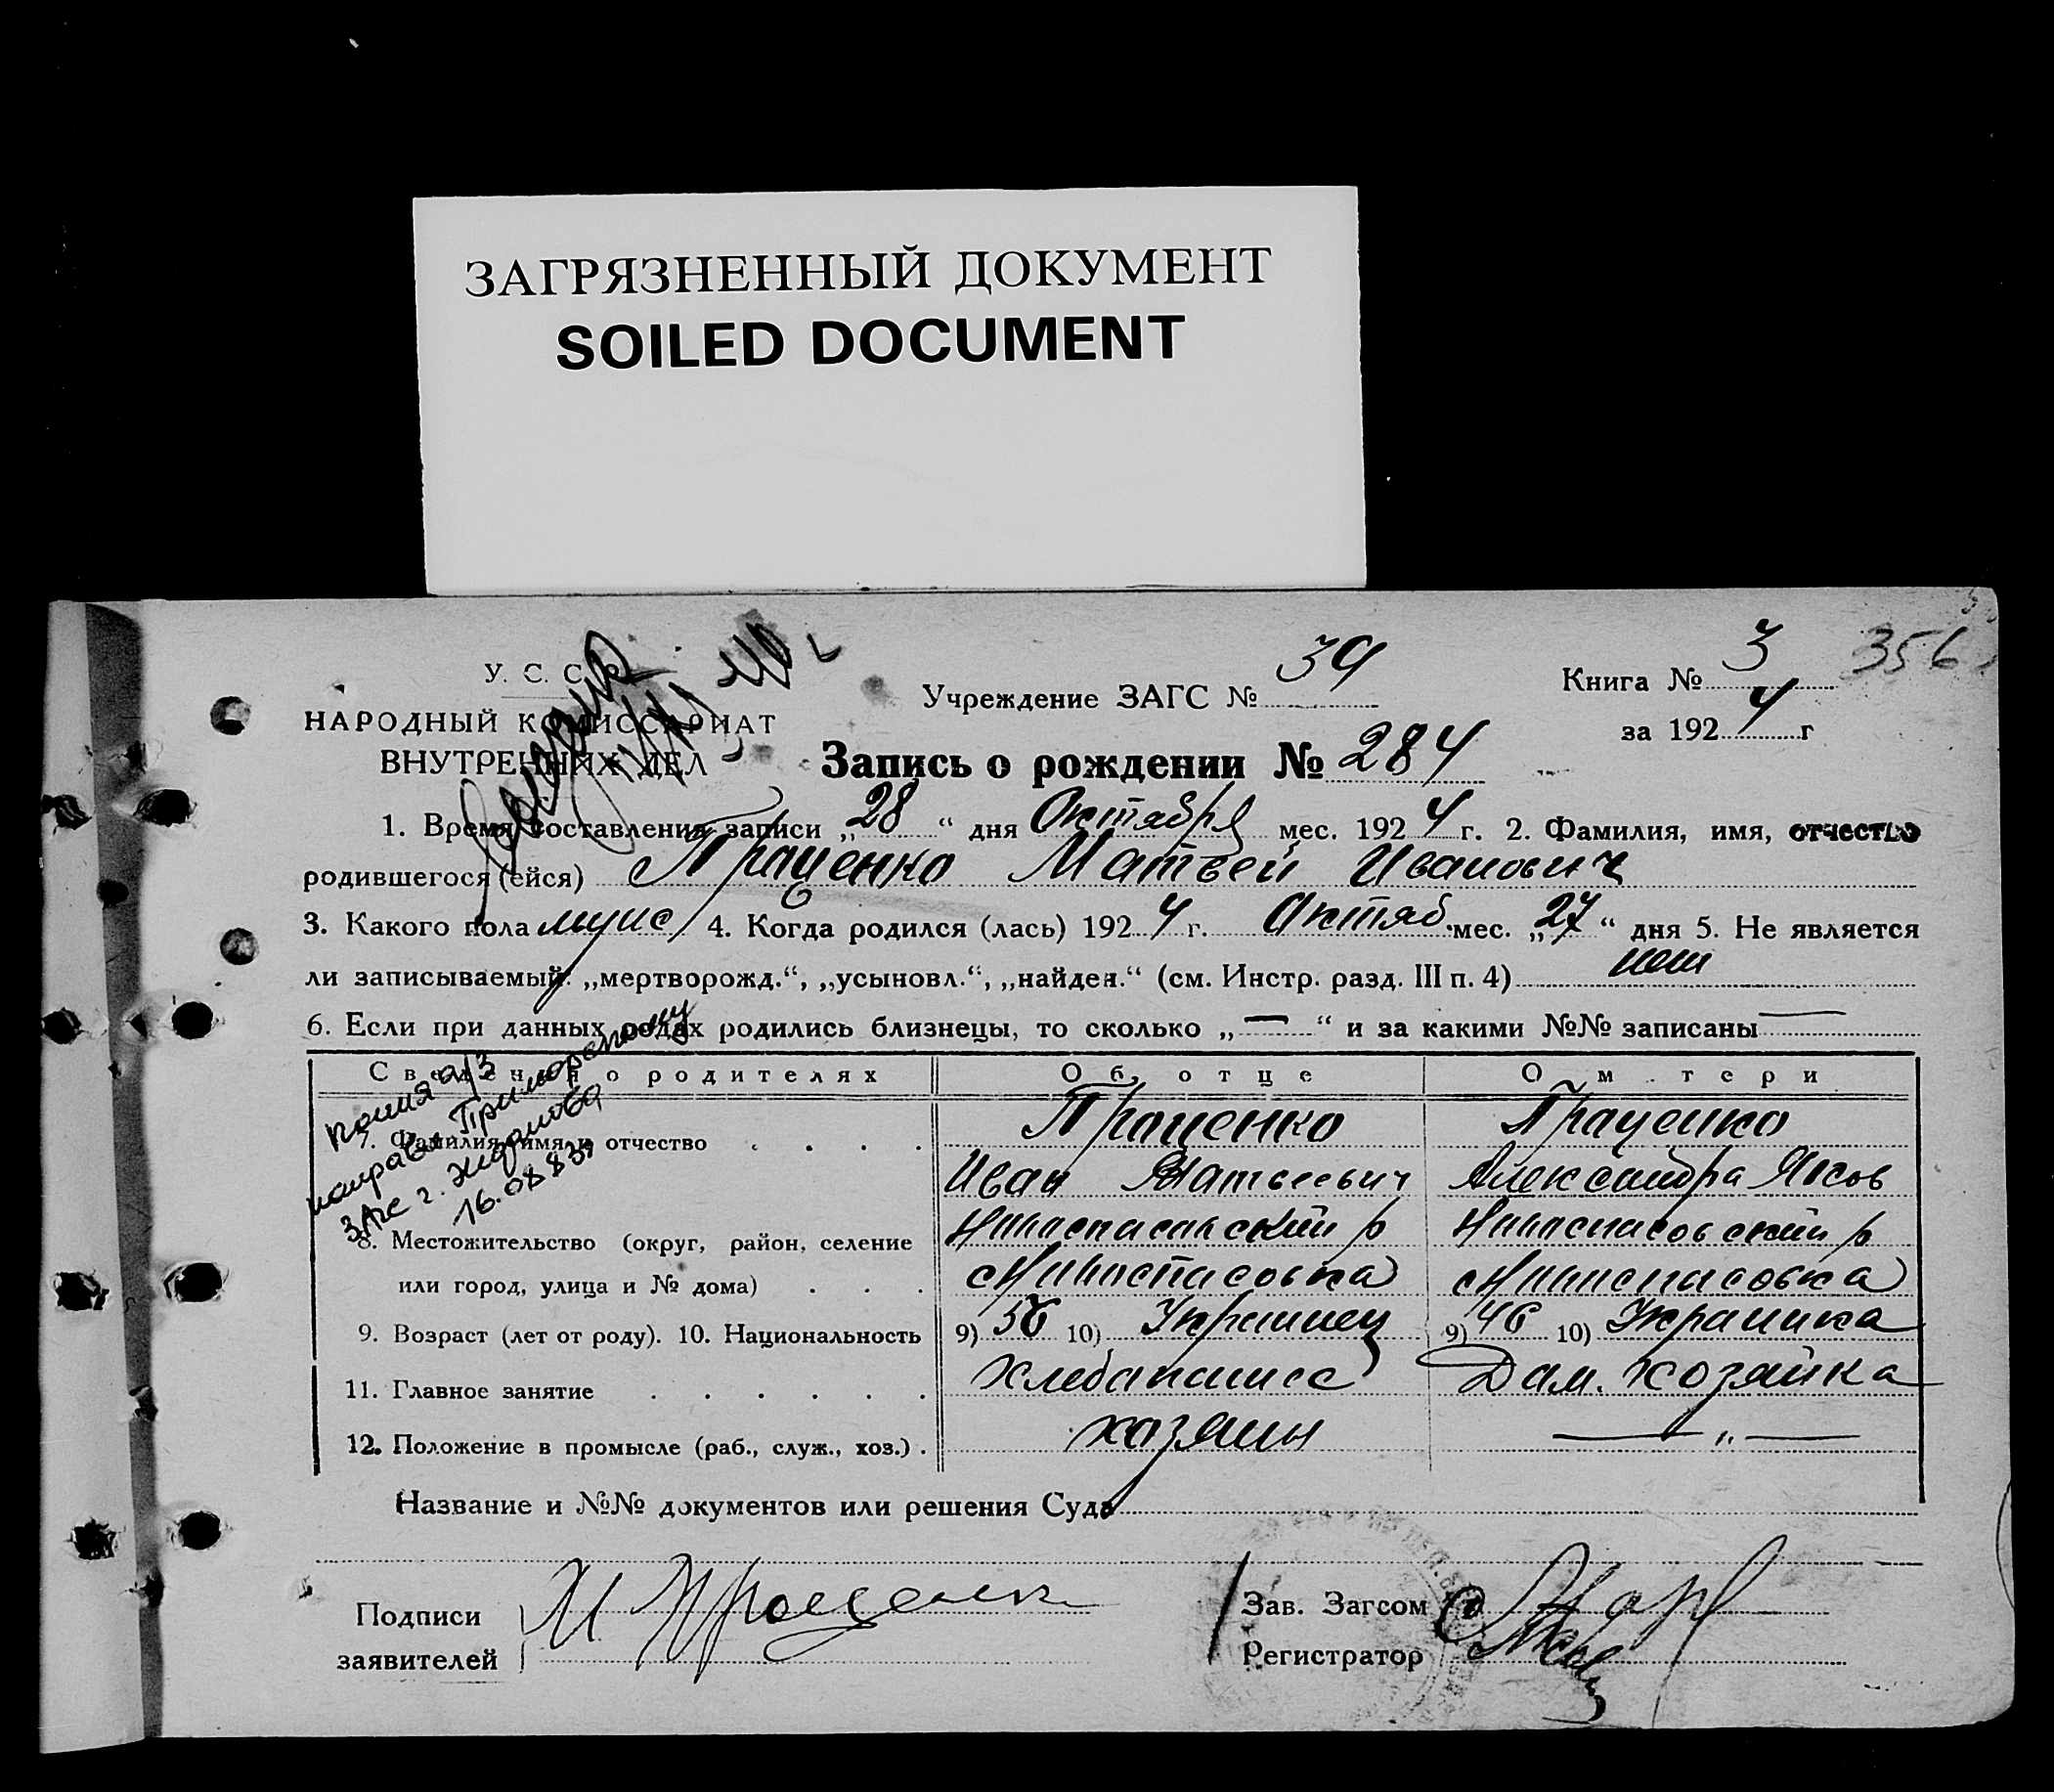 ЗАГРЯЗНЕННЫЙ ДОКУМЕНТ
SOILED DOCUMENT
356
У. С. С. Р.
НАРОДНЫЙ КОМИССАРИАТ
ВНУТРЕННИХ ДЕЛ
Учреждение ЗАГС № 39
Книга № 3
за 1924 г
Запись о рождении № 284
1. Время составления записи „28“ дня Октября мес. 1924 г. 2. Фамилия, имя, отчество
родившегося (ейся) Проценко Матвей Иванович
3. Какого пола мужс 4. Когда родился (лась) 1924 г. Октяб. мес. „27“ дня 5. Не является
ли записываемый: „мертворожд.“, „усыновл.“, „найден.“ (см. Инстр. разд. III п. 4) нет
6. Если при данных родах родились близнецы, то сколько „—“ и за какими №№ записаны —
копия а/з
направл Приморскому
ЗАГС г. Жданова
16.08.83г
Сведения о родителях Об отце О матери
7. Фамилия, имя и отчество Проценко Проценко
Иван Матвеевич Александра Яков
8. Местожительство (округ, район, селение р р
или город, улица и № дома)
9. Возраст (лет от роду). 10. Национальность 9) 56 10) Украинец 9) 46 10) Украинка
11. Главное занятие Хлебапашес Дам. хозяйка
12. Положение в промысле (раб., служ., хоз.) хазяин — „ —
Название и №№ документов или решения Суда
Подписи
заявителей
И Проценко
Зав. Загсом
Регистратор